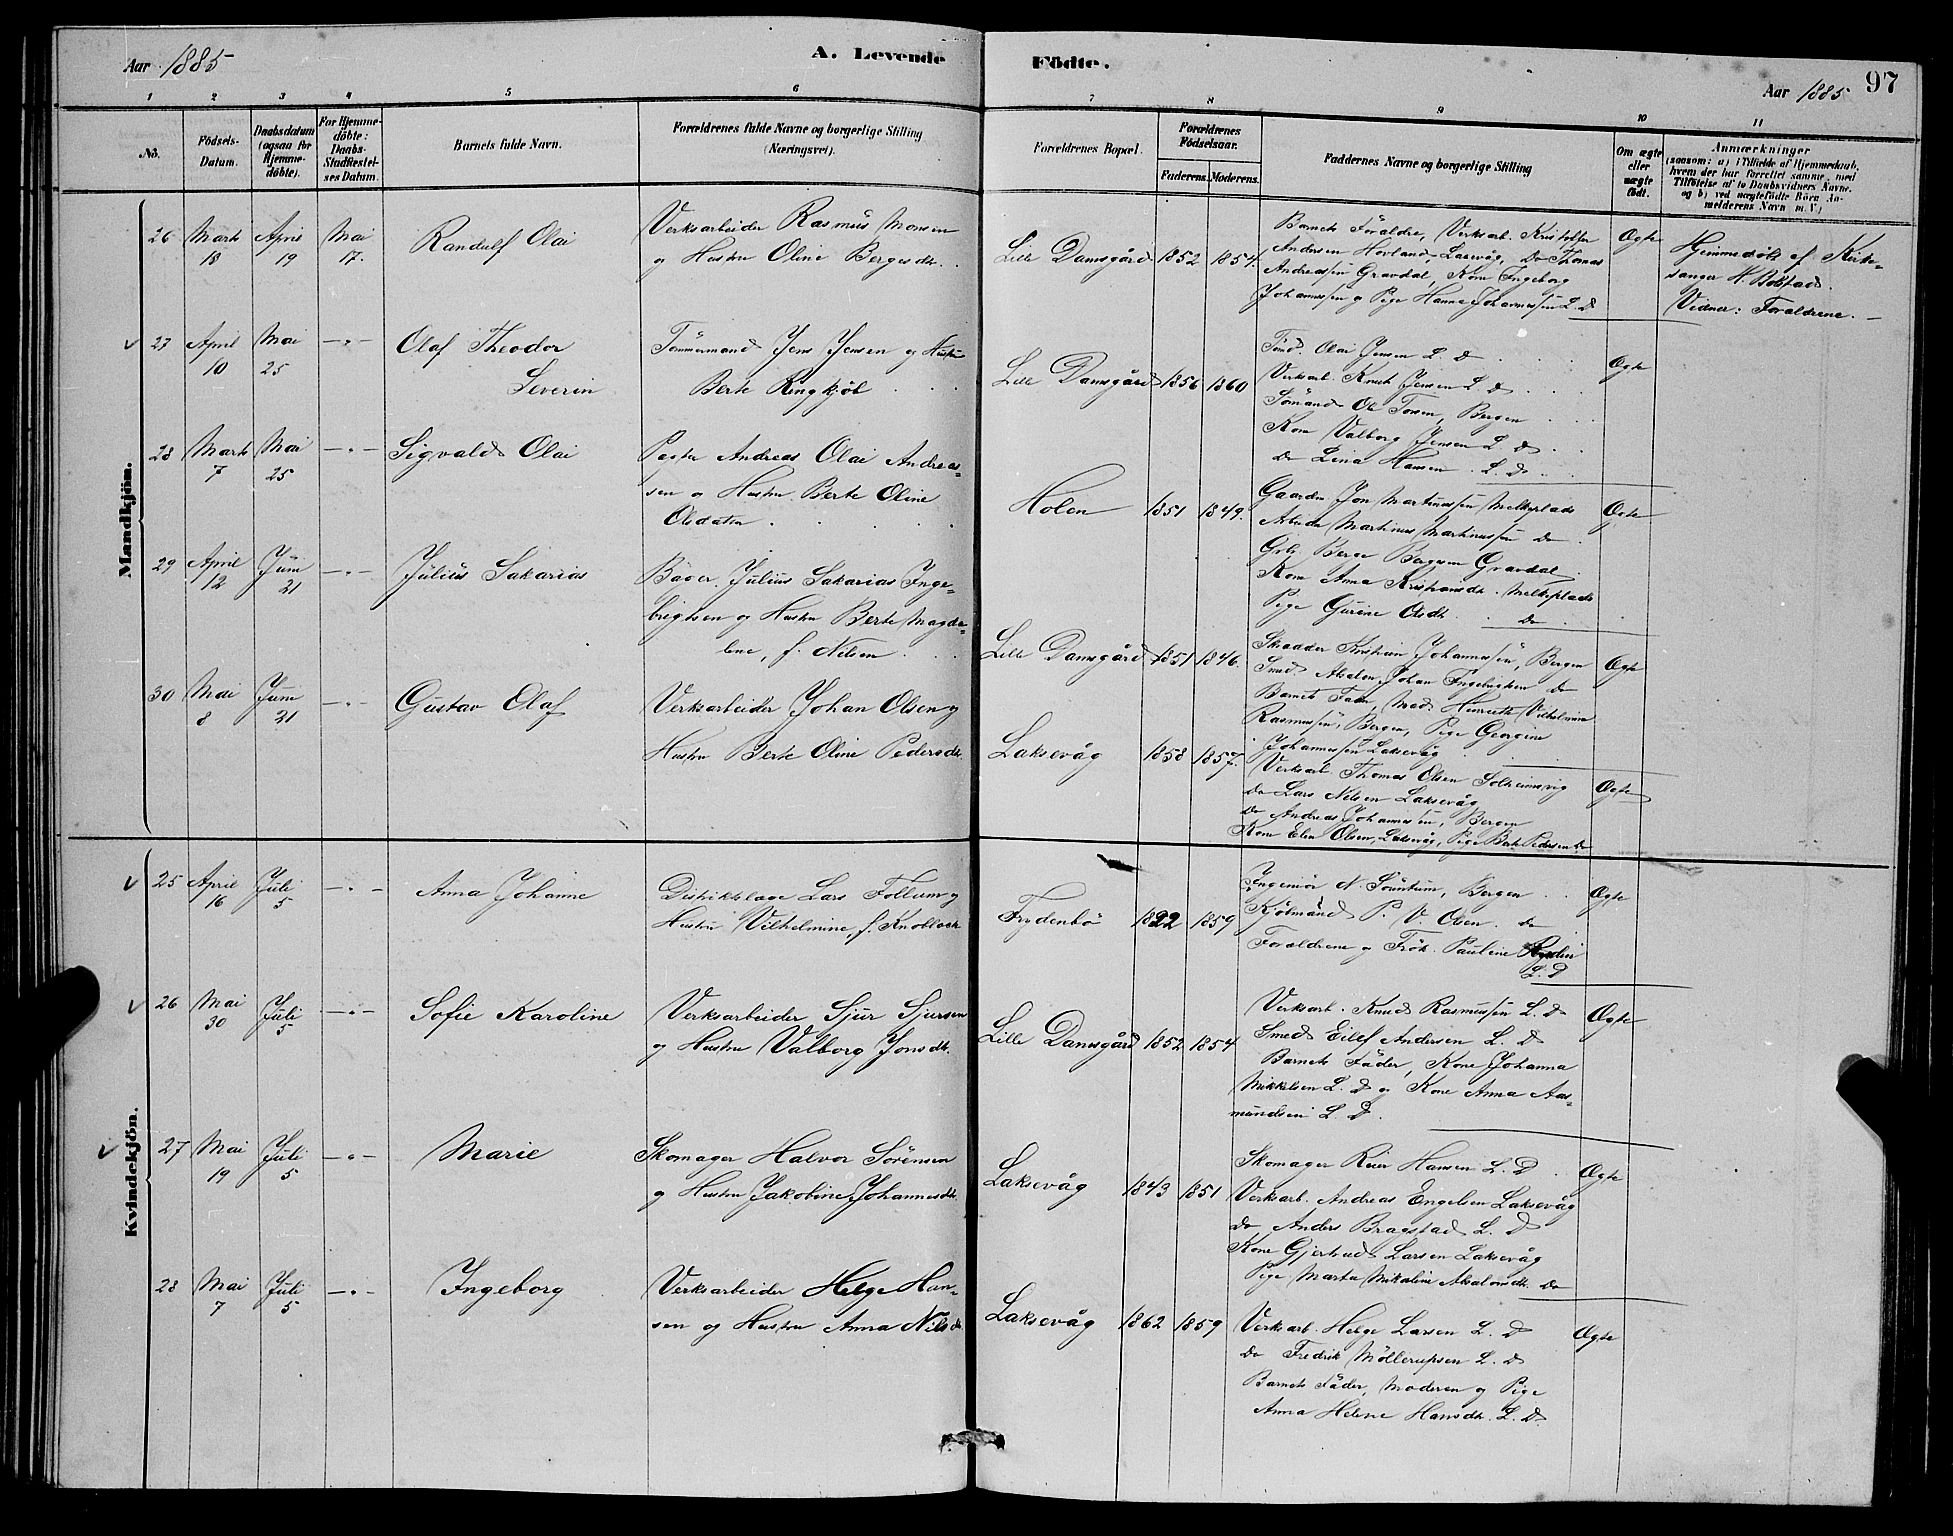 Aar 1885
A. Levende
Födte.
Aar 1885
97
1 2 3 4 5 6 7 8 9 10 11
No.
Födsels-
Datum.
Daabsdatum
(ogsaa for
Hjemme-
döbte).
For Hjemme-
döbte:
Daabs-
Stadfæstel-
ses Datum.
Barnets fulde Navn.
Forældrenes fulde Navne og borgerlige Stilling
(Næringsvei).
Forældrenes Bopæl.
Forældrenes
Födselsaar.
Faderens. Moderens.
Faddernes Navne og borgerlige Stilling
Om ægte
eller
uægte
födt.
Anmærkninger
(saasom: a) i Tilfælde af Hjemmedaab,
hvem der har forrettet samme, med
Tilföielse af to Daabsvidners Navne,
og b) ved uægtefödte Börn An-
melderens Navn m. V.)
Mandkjön.
26 Marts 18 April 19 Mai 17.
Randulf Olai
Verksarbeider Rasmus Monsen
og Hustru Oline Bergesdtr.
Lille Damsgård 1852 1854.
Barnets Forældre, Verksarb. Kristoffer
Andersen Hovland, Laksevåg, Do Thomas
Andreassen Gravdal, Kone Ingeborg
Johannessen og Pige Hanna Johannessen L. D
Ægte
Hjemmedöbt af Kirke-
sanger H. Bolstad.
Vidner: Forældrene. —
27 April 10 Mai 25 — " —
Olaf Theodor
Severin
Tömmermand Jens Jensen og Hustru
Berte Ringkjöb
Lille Damsgård 1856 1860
Tömd. Olai Jensen L. D
Verksarb. Knut Jensen L. D
Sömand Ole Tosen, Bergen
Kone Valborg Jensen L. D
Do Lina Hansen L. D
Ægte
28 Marts 7 Mai 25 — " —
Sigvald Olai
Andreas Olai Andreas-
sen og Hustru Berte Oline
Olsdatter
Holen 1851 1849.
Gaardm. Jon Martinussen Melkeplads
Arbeider Martinus Martinussen Do
Grb. Berge Bergesen Gravdal
Kone Anna Kristiansdtr. Melkeplads
Pige Gurine Olsdtr. Do
Ægte
29 April 12 Juni 21 — " —
Julius Sakarias
Bager Julius Sakarias Inge-
brigtsen og Hustru Berte Magda-
lene, f. Nilsen
Lille Damsgård 1851 1846.
Skrædder Kristian Johannessen, Bergen
Smed Absalon Johan Ingebrigtsen Do
Barnets Fader, Mad. Henriette Vilhelmine
Rasmussen, Bergen, Pige Georgine
Johannessen Laksevåg
Ægte
30 Mai 8 Juni 21 — " —
Gustav Olaf
Verksarbeider Johan Olsen og
Hustru Berte Oline Pedersdtr.
Laksevåg 1858 1857.
Verksarb. Thomas Olsen Solheimsvig
Do Lars Nilsen Laksevåg
Do Andreas Johannessen, Bergen
Kone Elen Olsen, Laksevåg, Pige Berte Pedersen Do
Ægte
Kvindekjön.
25 April 16 Juli 5 — " —
Anna Johanne
Distriktslæge Lars Follum og
Hustru Vilhelmine, f. Knoblock
Frydenbö 1822 1859
Ingeniör N. Sontum, Bergen
Kjöbmand P. V. Olsen Do
Forældrene og Frök. Pauline
L. D
Ægte
26 Mai 30 Juli 5 — " —
Sofie Karoline
Verksarbeider Sjur Sjursen
og Hustru Valborg Jonsdtr.
Lille Damsgård 1852 1854
Verksarb. Knud Rasmussen L. D
Smed Eilef Andersen L. D
Barnets Fader, Kone Johanna
Mikkelsen L. D og Kone Anna Aas-
mundsen L. D.
Ægte
27 Mai 19 Juli 5 — " —
Marie
Skomager Halvor Sörensen
og Hustru Jakobine Johannesdtr.
Laksevåg 1843 1851
Skomager Reier Hansen L. D
Verksarb. Andreas Engelsen Laksevåg
Do Anders Bragstad L. D
Kone Gjertrud Larsen Laksevåg
Pige Marta Mikaline Absalonsdtr. Do
Ægte
28 Mai 7 Juli 5 — " —
Ingeborg
Verksarbeider Helge Han-
sen og Hustru Anna Nilsdtr.
Laksevåg 1862 1859
Verksarb. Helge Larsen L. D
Do Fredrik Möllerupsen L. D
Barnets Fader, Moderen og Pige
Anna Helene Hansdtr. L. D
Ægte